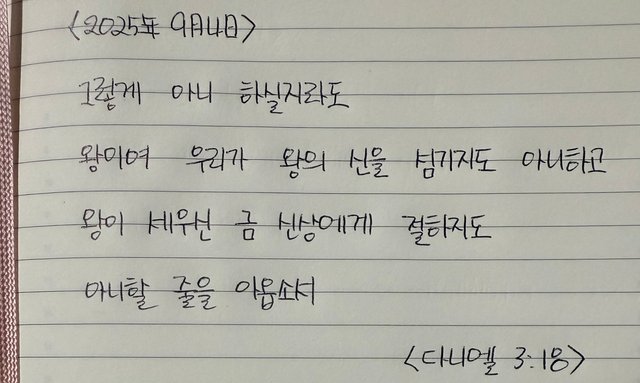 <2025年 9月4日>
그렇게 아니 하실지라도
왕이여 우리가 왕의 신을 섬기지도 아니하고
왕이 세우신 금 신상에게 절하지도
아니할 줄을 아옵소서
<다니엘 3:18>